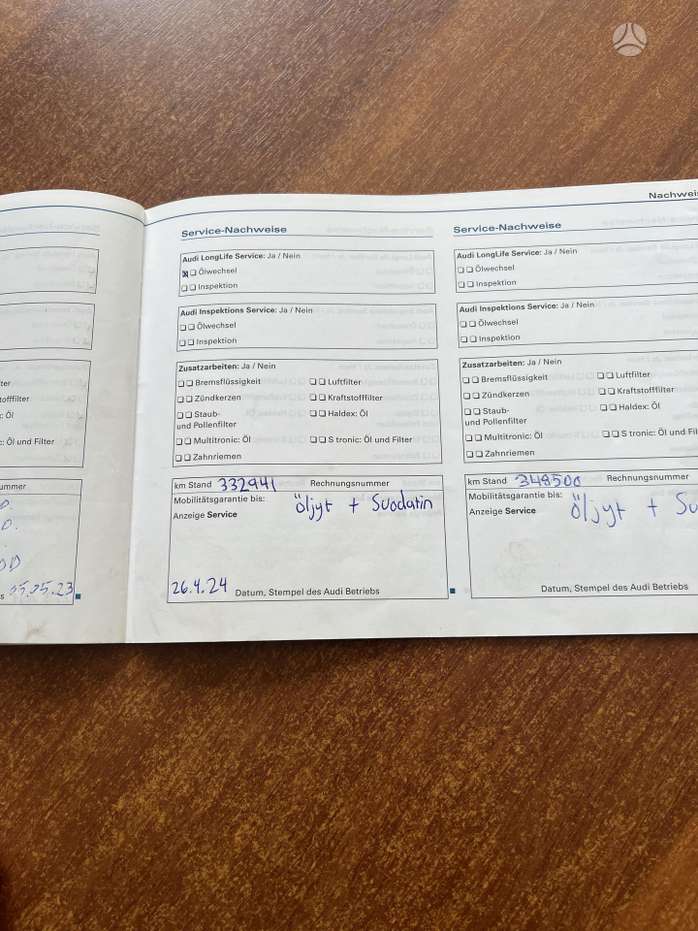 Nachweis
Service-Nachweise
Audi LongLife Service: Ja / Nein
Ölwechsel
Inspektion
Audi Inspektions Service: Ja / Nein
Ölwechsel
Inspektion
Zusatzarbeiten: Ja / Nein
Bremsflüssigkeit
Luftfilter
Zündkerzen
Kraftstofffilter
Staub-
und Pollenfilter
Haldex: Öl
Multitronic: Öl
S tronic: Öl und Filter
Zahnriemen
km Stand 332941 Rechnungsnummer
Mobilitätsgarantie bis:
Öljyt + Suodatin
Anzeige Service
26.4.24 Datum, Stempel des Audi Betriebs
Service-Nachweise
Audi LongLife Service: Ja / Nein
Ölwechsel
Inspektion
Audi Inspektions Service: Ja / Nein
Ölwechsel
Inspektion
Zusatzarbeiten: Ja / Nein
Bremsflüssigkeit
Luftfilter
Zündkerzen
Kraftstofffilter
Staub-
und Pollenfilter
Haldex: Öl
Multitronic: Öl
S tronic: Öl und Fil
Zahnriemen
km Stand 348500 Rechnungsnummer
Mobilitätsgarantie bis:
Öljyt + Su
Anzeige Service
Datum, Stempel des Audi Betriebs
: Öl und Filter